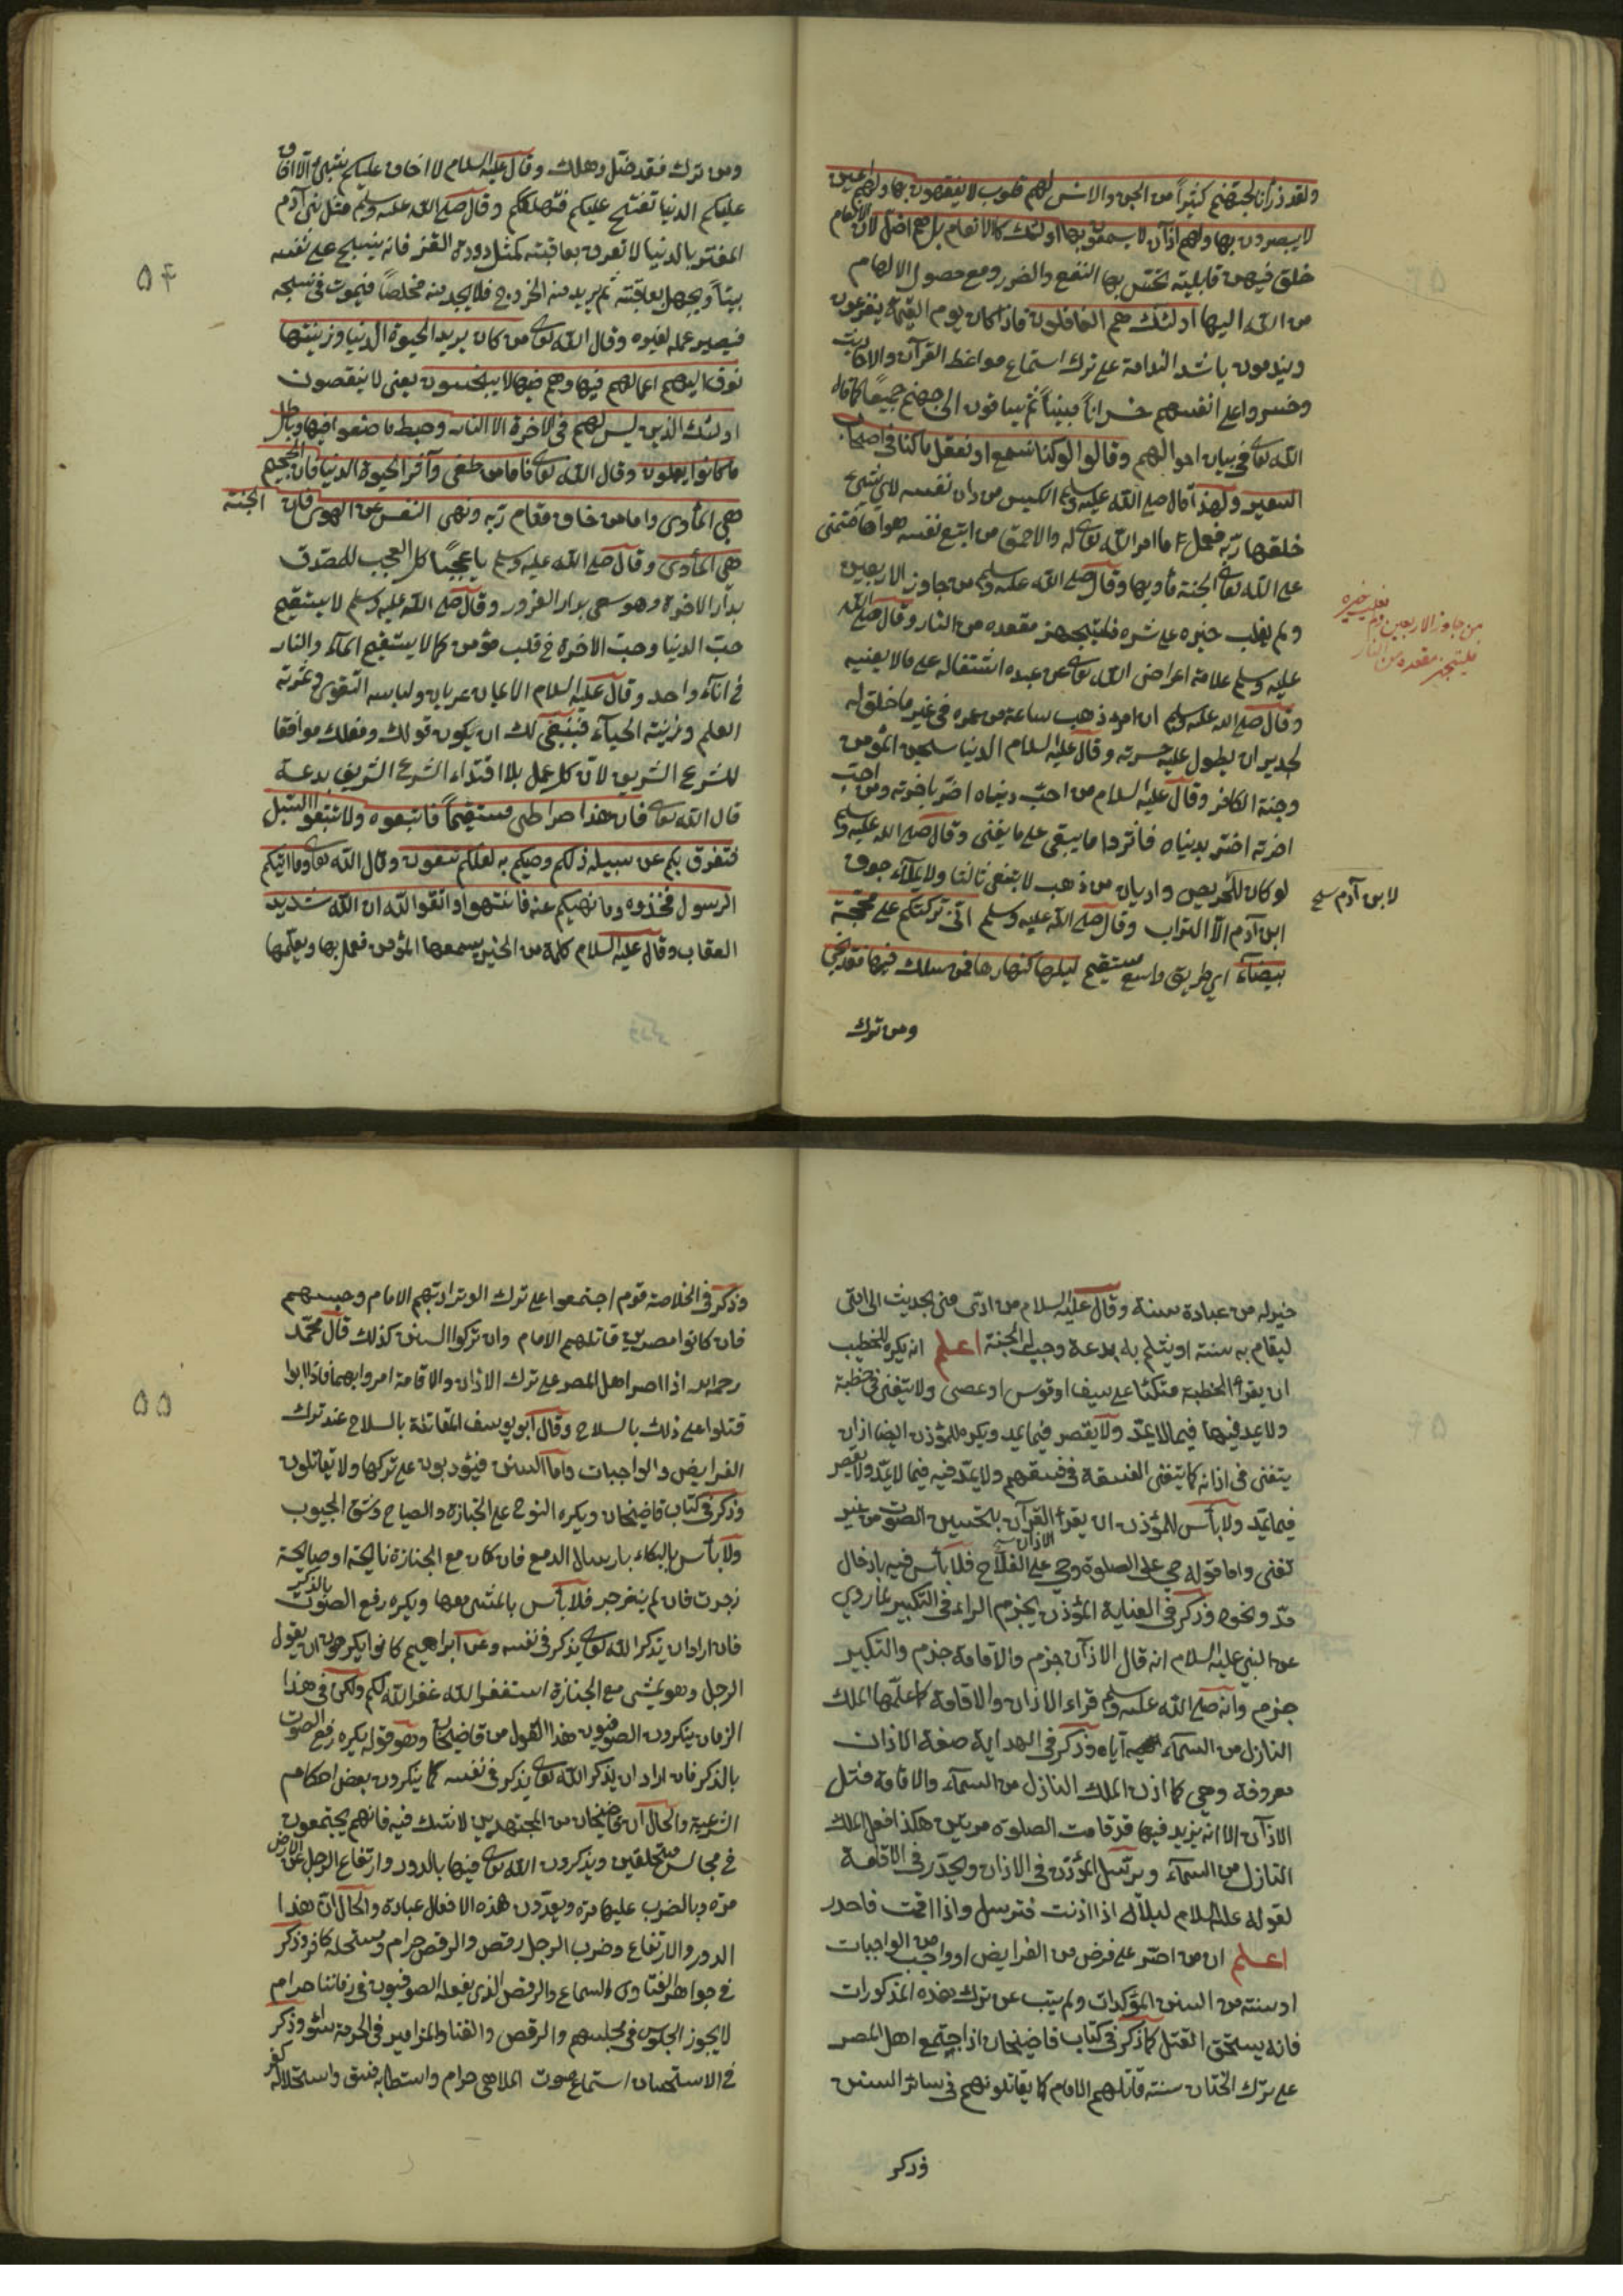 ولقد ذرأنا لجهنم كثيراً من الجن والانس لهم قلوب لا يفقهون بها ولهم اعين
لا يبصرون بها ولهم اذان لا يسمعون بها اولئك كالانعام بل هم اضل لان الانعام
خلق فيهن قابلية تختش بها النفع والضرر ومع حصول الالهام
من الله اليها اولئك هم الغافلون فاذا كان يوم القيمة يفزعون
ويندمون باشد الندامة على ترك استماع مواعظ القرآن والاحاديث
وخسروا على انفسهم خسراناً مبيناً ثم يساقون الى جهنم جميعاً كما قال
الله تعالى في بيان احوالهم وقالوا لو كنا نسمع او نعقل ما كنا في اصحاب
السعير ولهذا قال صلى الله عليه وسلم الكيس من دان نفسه لاي شيئ
خلقها ربه فعمل ما امر الله تعالى له والاحمق من اتبع نفسه هواها فتمنى
على الله تعالى الجنة مأويها وقال صلى الله عليه وسلم من جاوز الاربعين
ولم يغلب خيره على شره فليتجهز مقعده من النار وقال صلى الله
عليه وسلم علامة اعراض الله تعالى عن عبده اشتغاله على مالا يعنيه
وقال صلى الله عليه وسلم ان امرء ذهب ساعة من عمره في غير ما خلق له
لجدير ان يطول عليه حسرته وقال عليه السلام الدنيا سجن المؤمن
وجنة الكافر وقال عليه السلام من احب دنياه اضر باخرته ومن احب
اخرته اضر بدنياه فاثروا ما يبقى على ما يفنى وقال صلى الله عليه وسلم
لو كان للحريص واديان من ذهب لابتغى ثالثا ولا يملأ جوف
ابن آدم الا التراب وقال صلى الله عليه وسلم اني تركتكم على محجة
بيضاء اي طريق واسع مستقيم ليلها كنهارها فمن سلك فيها فقد نجى
ومن ترك
من جاوز الاربعين ولم يغلب خيره
فليتجهز مقعده من النار
لابن آدم صح
۵۴
ومن ترك فقد ضل وهلك وقال عليه السلام لا اخاف عليكم بشيئ الا اخاف
عليكم الدنيا تفتح عليكم فتهلككم وقال صلى الله عليه وسلم مثل بني آدم
المغتر بالدنيا لا تعرف بعاقبته كمثل دودة القز فانه ينسج على نفسه
بيتاً ويجهل بعاقبته ثم يريد منه الخروج فلا يجد منه مخلصاً فيموت في نسجه
فيصير عمله لغيره وقال الله تعالى من كان يريد الحيوة الدنيا وزينتها
نوف اليهم اعمالهم فيها وهم فيها لا يبخسون يعني لا ينقصون
اولئك الذين ليس لهم في الاخرة الا النار وحبط ما صنعوا فيها وباطل
ما كانوا يعملون وقال الله تعالى فاما من طغى وآثر الحيوة الدنيا فان الجحيم
هي المأوى واما من خاف مقام ربه ونهى النفس عن الهوى فان الجنة
هي المأوى وقال صلى الله عليه وسلم يا عجبًا كل العجب للمصدق
بدار الاخرة وهو يسعى بدار الغرور وقال صلى الله عليه وسلم لا يستقيم
حب الدنيا وحب الاخرة في قلب مؤمن كما لا يستقيم الماء والنار
في اناء واحد وقال عليه السلام الايمان عريان ولباسه التقوى وثمرته
العلم وزينته الحياء فينبغي لك ان يكون قولك وفعلك موافقا
للشرع الشريف لان كل عمل بلا اقتداء الشرع الشريف بدعة
قال الله تعالى فان هذا صراطي مستقيماً فاتبعوه ولا تتبعوا السبل
فتفرق بكم عن سبيله ذلكم وصيكم به لعلكم تتقون وقال الله تعالى وما اتيكم
الرسول فخذوه وما نهيكم عنه فانتهوا واتقوا الله ان الله شديد
العقاب وقال عليه السلام كلمة من الخير يسمعها المؤمن فعمل بها ويعلمها
خير له من عبادة سنة وقال عليه السلام من ادى مني بحديث الى امتي
ليقام به سنة او يثلم به بدعة وجب له الجنة اعلم انه يكره للخطيب
ان يقرأ الخطبة متكئا على سيف او قوس او عصى ولا يتغنى في خطبة
ولا يمد فيها فيما لا يمد ولا يقصر فيما يمد ويكره للمؤذن ايضا ان
يتغنى في اذانه كما يتغنى الفسقة في فسقهم ولا يمد فيه فيما لا يمد ولا يقصر
فيما يمد ولا بأس للمؤذن ان يقرأ القرآن بتحسين الصوت من غير
تغنى واما قوله حي على الصلوة وحي على الفلاح فلا بأس فيه بادخال
مد ونحوه وذكر في العناية المؤذن يجزم الراء في التكبير لما روي
عن النبي عليه السلام انه قال الاذان جزم والاقامة جزم والتكبير
جزم وانه صلى الله عليه وسلم قراء الاذان والاقامة كما علمها الملك
النازل من السماء اياه وذكر في الهداية صفة الاذان
معروفة وهي كما اذن الملك النازل من السماء والاقامة مثل
الاذان الا انه يزيد فيها قد قامت الصلوة مرتين هكذا فعل الملك
النازل من السماء ويترسل المؤذن في الاذان ويحدر في الاقامة
لقوله عليه السلام لبلال اذا اذنت فترسل واذا اقمت فاحدر
اعلم ان من اصر على فرض من الفرايض او واجب من الواجبات
او سنة من السنن المؤكدات ولم يتب عن ترك هذه المذكورات
فانه يستحق القتل كما ذكر في كتاب قاضيخان اذا اجتمع اهل المصر
على ترك الختان سنة قاتلهم الامام كما يقاتلونهم في سائر السنن
وذكر
۵۵
وذكر في الخلاصة قوم اجتمعوا على ترك الوتر ادبهم الامام وحبسهم
فان كانوا مصرين قاتلهم الامام وان تركوا السنن كذلك قال محمد
رحمه الله اذا اصر اهل المصر على ترك الاذان والاقامة امروا بهما فاذا ابوا
قتلوا على ذلك بالسلاح وقال ابو يوسف المقاتلة بالسلاح عند ترك
الفرايض والواجبات واما السنن فيؤدبون على تركها ولا يقاتلون
وذكر في كتاب قاضيخان ويكره النوح على الجنازة والصياح وشق الجيوب
ولا بأس بالبكاء بارسال الدمع فان كان مع الجنازة نايحة او صايحة
زجرت فان لم ينزجر فلا بأس بالمشي معها ويكره رفع الصوت بالذكر
فان اراد ان يذكر الله تعالى يذكر في نفسه وعن ابراهيم كانوا يكرهون ان يقول
الرجل وهو يمشي مع الجنازة استغفر الله غفر الله لكم ولكن في هذا
الزمان ينكرون الصوفيون هذا القول من قاضيخان وهو قوله يكره رفع الصوت
بالذكر فان اراد ان يذكر الله تعالى يذكر في نفسه كما ينكرون بعض احكام
الشرعية والحال ان قاضيخان من المجتهدين لا شك فيه فانهم يجتمعون
في مجالس متحلقين ويذكرون الله تعالى فيها بالدور وارتفاع الرجل عن الارض
مرة وبالضرب عليها مرة ويعدون هذه الافعال عبادة والحال ان هذا
الدور والارتفاع وضرب الرجل رقص والرقص حرام ومستحله كافر وذكر
في جواهر الفتاوى السماع والرقص الذي يفعله الصوفيون في زماننا حرام
لا يجوز الجلوس في مجلسهم والرقص والغنا والمزامير في الحرمة سواء وذكر
في الاستحسان استماع صوت الملاهي حرام واستطابه فسق واستحلاله كفر